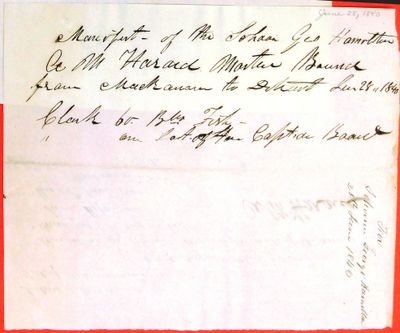 June 28, 1840
Manifest of the Schoon Geo Hamilton
A M Harard Master Bound
from Mackanaw to Detroit Jun 28th 1840
Clark 60 Bbs Fish
" one Lot of Captin Board
Schooner George Hamilton
28th June 1840